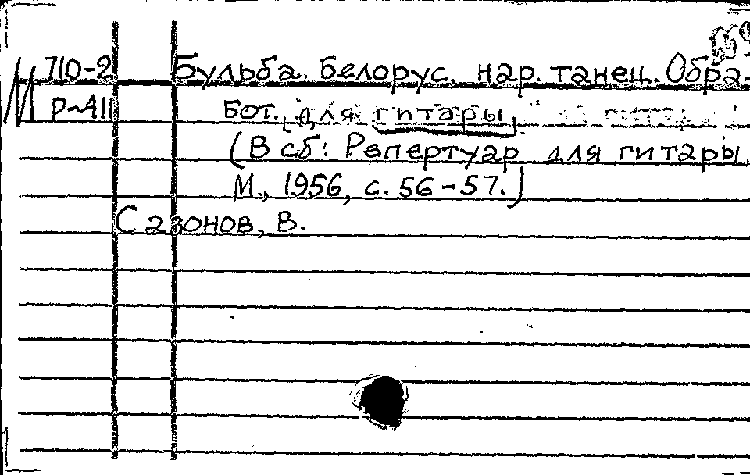 М 710-2 Бульба. Белорус. нар. танец. Обра-
Р-411 бот. для гитары
(В сб: Репертуар для гитары
М., 1956, с. 56-57.)
Сазонов, В.